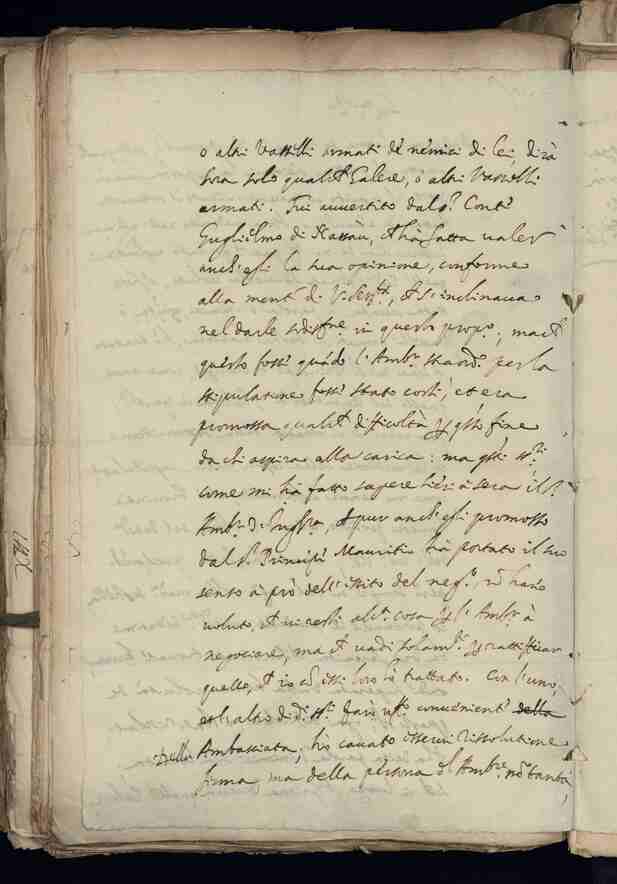 o altri Vasselli armati de nemici di lei, dirà
hora solo qualch Galere, o altri Vasselli
armati. Fui avvertito dal s.r Conte
Guglielmo di Nassau, ch'hà fatta valer
anch'egli la sua opinione, conforme
alla mente di V. Ser.tà, che s'inclinava
nel darle sodisf.ne in questo prop.o; mach
questo fosse quãdo l'Amb.r straord.o per la
stipulatione fosse stato costì; et era
promossa qualch difficoltà p qsto fine
da chi aspira alla carica: ma qsti ss.ri
come mi hà fatto sapere hieri à sera il s.r
Amb.r d'Ingh.ra, ch pur anch'egli promosso
dal s.r Principe Mauritio hà portato il suo
senso à prò dell'essito del neg.o, nõ hanno
voluto, ch vi resti alt.a cosa p l'Amb.r à
negociare, ma ch vadi solam.te p rattificar
quello, ch io cõ essi loro hò trattato. Con l'uno,
et l'altro di d.i ss.ri farò uff.o conveniente della
Della Ambasciata, hò cavato esservi rissolutione
ferma, ma della persona d'Amb.re nõ tanta,